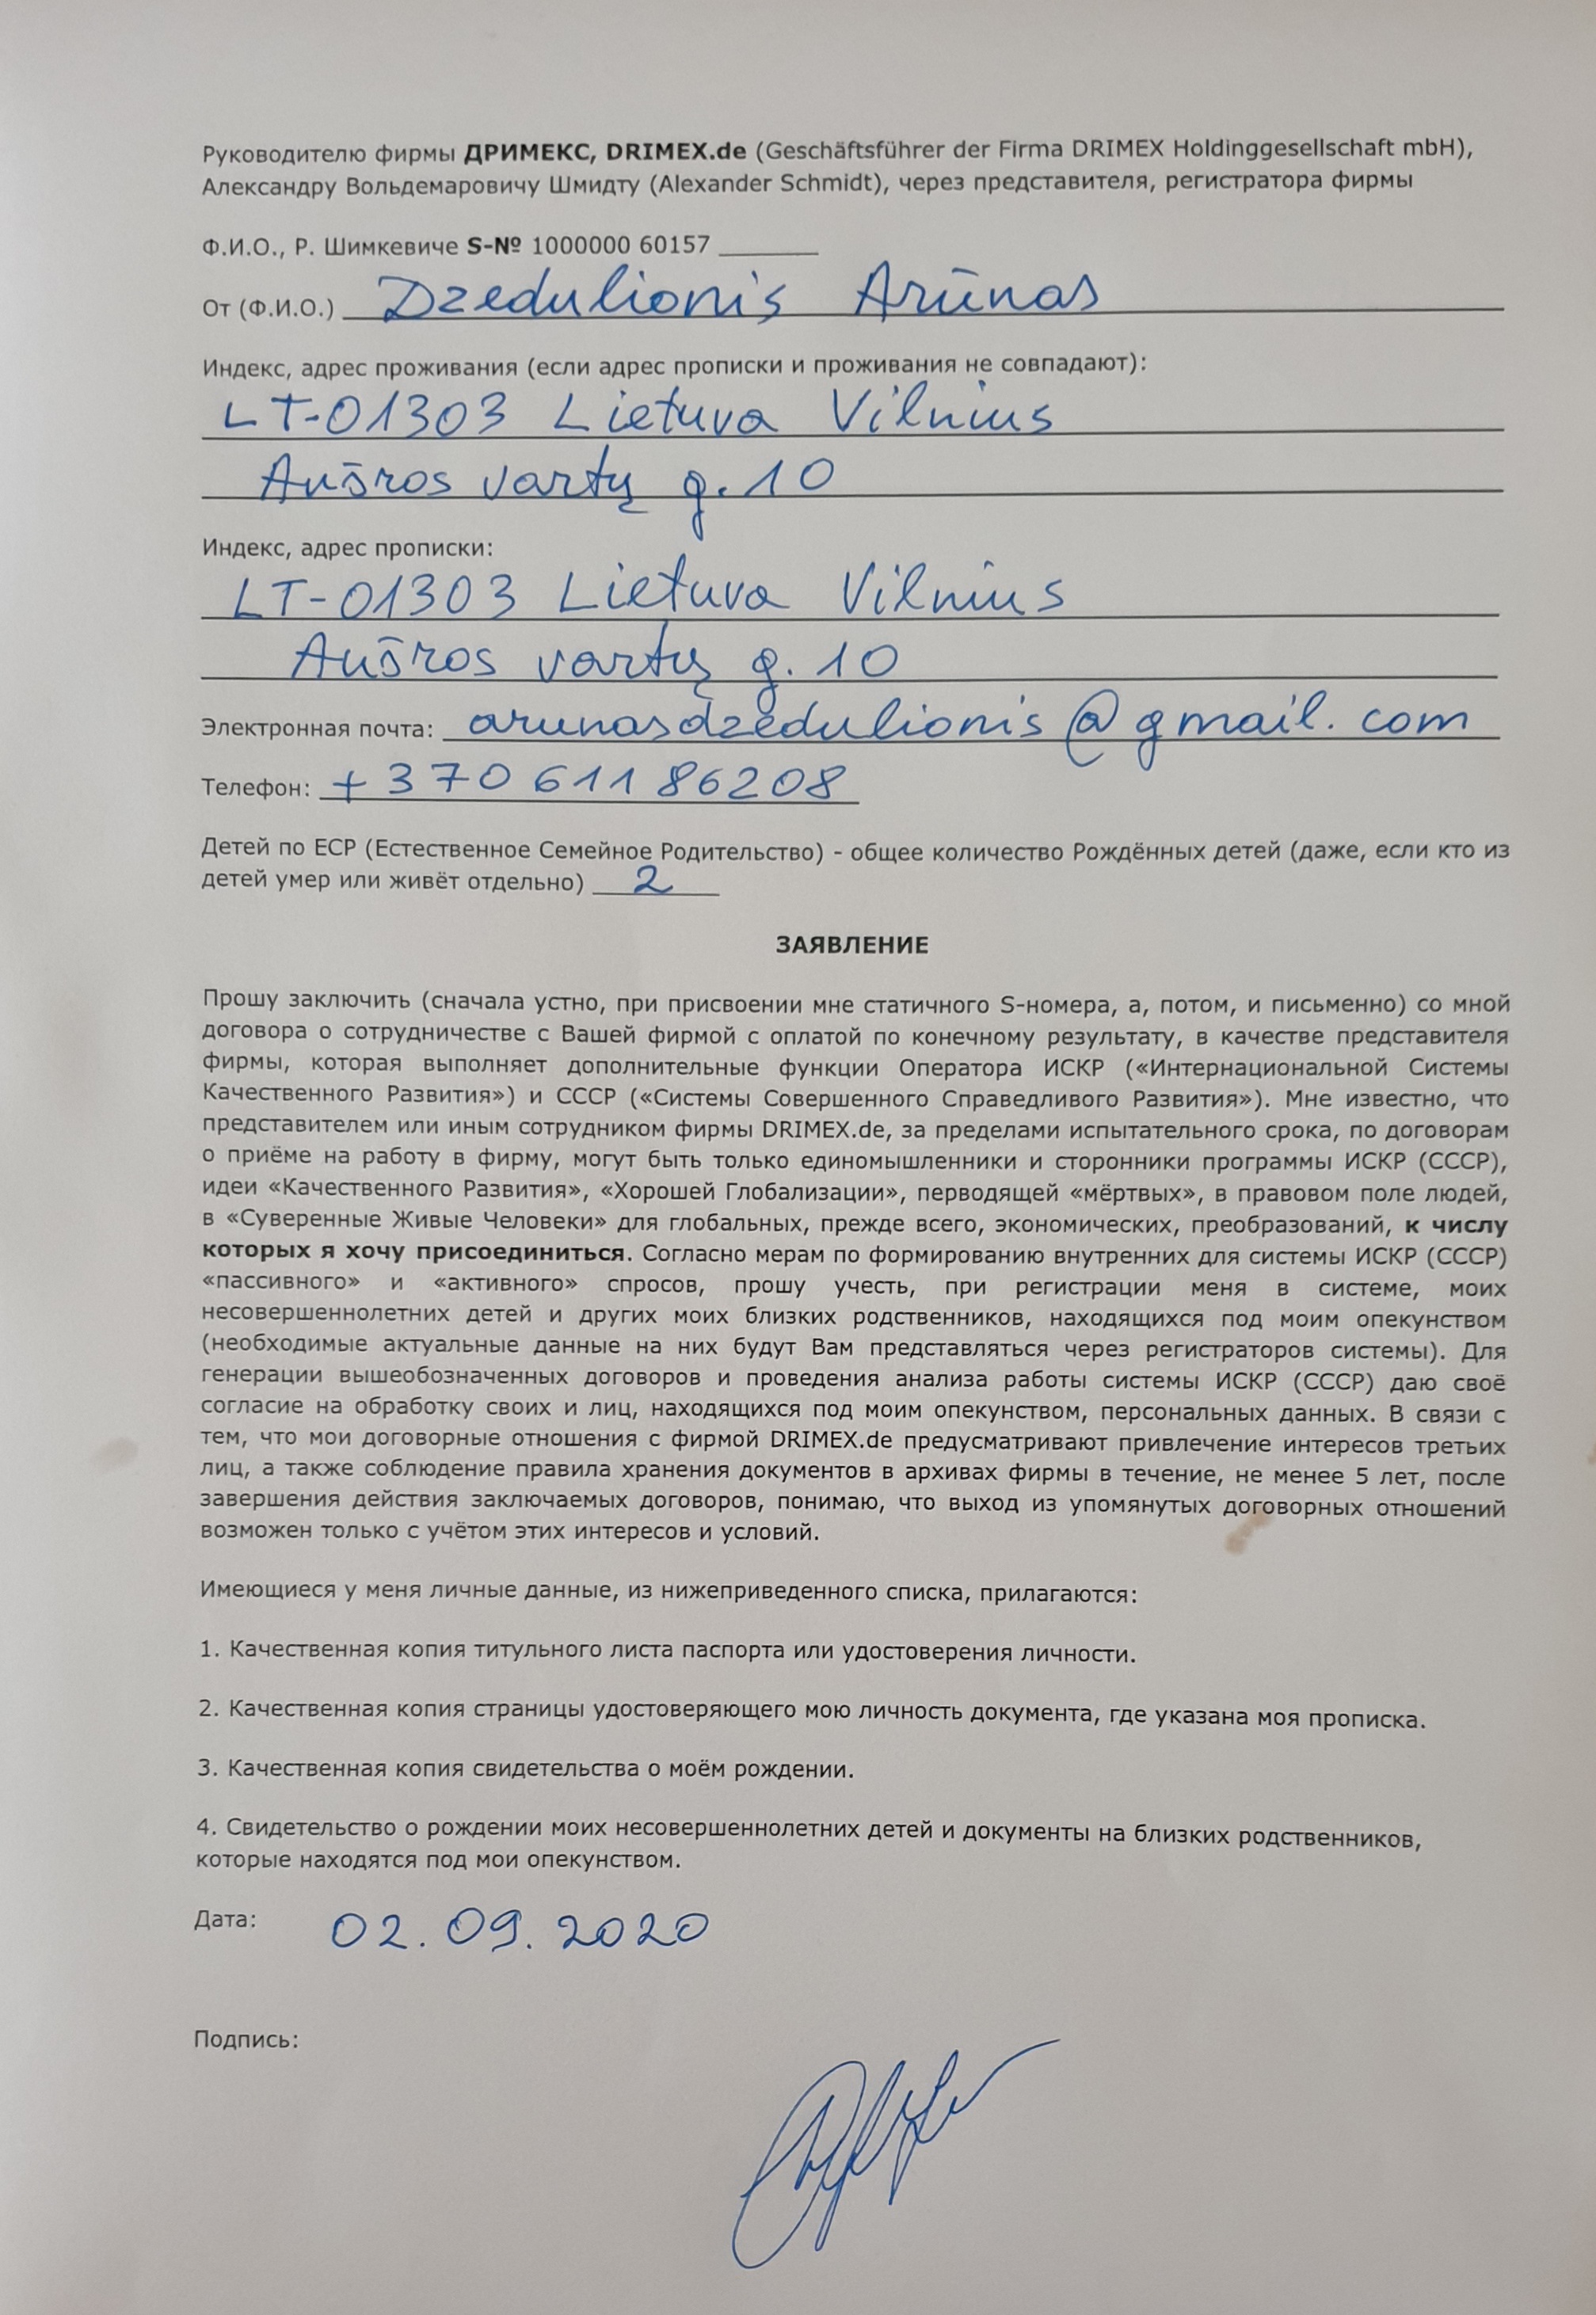 Руководителю фирмы ДРИМЕКС, DRIMEX.de (Geschäftsführer der Firma DRIMEX Holdinggesellschaft mbH),
Александру Вольдемаровичу Шмидту (Alexander Schmidt), через представителя, регистратора фирмы
Ф.И.О., Р. Шимкевиче S-№ 1000000 60157
От (Ф.И.О.) Dzedulionis Arūnas
Индекс, адрес проживания (если адрес прописки и проживания не совпадают):
LT-01303 Lietuva Vilnius
Aušros vartų g. 10
Индекс, адрес прописки:
LT-01303 Lietuva Vilnius
Aušros vartų g. 10
Электронная почта: arunasdzedulionis@gmail.com
Телефон: +370 611 86208
Детей по ЕСР (Естественное Семейное Родительство) - общее количество Рождённых детей (даже, если кто из
детей умер или живёт отдельно) 2
ЗАЯВЛЕНИЕ
Прошу заключить (сначала устно, при присвоении мне статичного S-номера, а, потом, и письменно) со мной
договора о сотрудничестве с Вашей фирмой с оплатой по конечному результату, в качестве представителя
фирмы, которая выполняет дополнительные функции Оператора ИСКР («Интернациональной Системы
Качественного Развития») и СССР («Системы Совершенного Справедливого Развития»). Мне известно, что
представителем или иным сотрудником фирмы DRIMEX.de, за пределами испытательного срока, по договорам
о приёме на работу в фирму, могут быть только единомышленники и сторонники программы ИСКР (СССР),
идеи «Качественного Развития», «Хорошей Глобализации», перводящей «мёртвых», в правовом поле людей,
в «Суверенные Живые Человеки» для глобальных, прежде всего, экономических, преобразований, к числу
которых я хочу присоединиться. Согласно мерам по формированию внутренних для системы ИСКР (СССР)
«пассивного» и «активного» спросов, прошу учесть, при регистрации меня в системе, моих
несовершеннолетних детей и других моих близких родственников, находящихся под моим опекунством
(необходимые актуальные данные на них будут Вам представляться через регистраторов системы). Для
генерации вышеобозначенных договоров и проведения анализа работы системы ИСКР (СССР) даю своё
согласие на обработку своих и лиц, находящихся под моим опекунством, персональных данных. В связи с
тем, что мои договорные отношения с фирмой DRIMEX.de предусматривают привлечение интересов третьих
лиц, а также соблюдение правила хранения документов в архивах фирмы в течение, не менее 5 лет, после
завершения действия заключаемых договоров, понимаю, что выход из упомянутых договорных отношений
возможен только с учётом этих интересов и условий.
Имеющиеся у меня личные данные, из нижеприведенного списка, прилагаются:
1. Качественная копия титульного листа паспорта или удостоверения личности.
2. Качественная копия страницы удостоверяющего мою личность документа, где указана моя прописка.
3. Качественная копия свидетельства о моём рождении.
4. Свидетельство о рождении моих несовершеннолетних детей и документы на близких родственников,
которые находятся под мои опекунством.
Дата: 02.09.2020
Подпись: